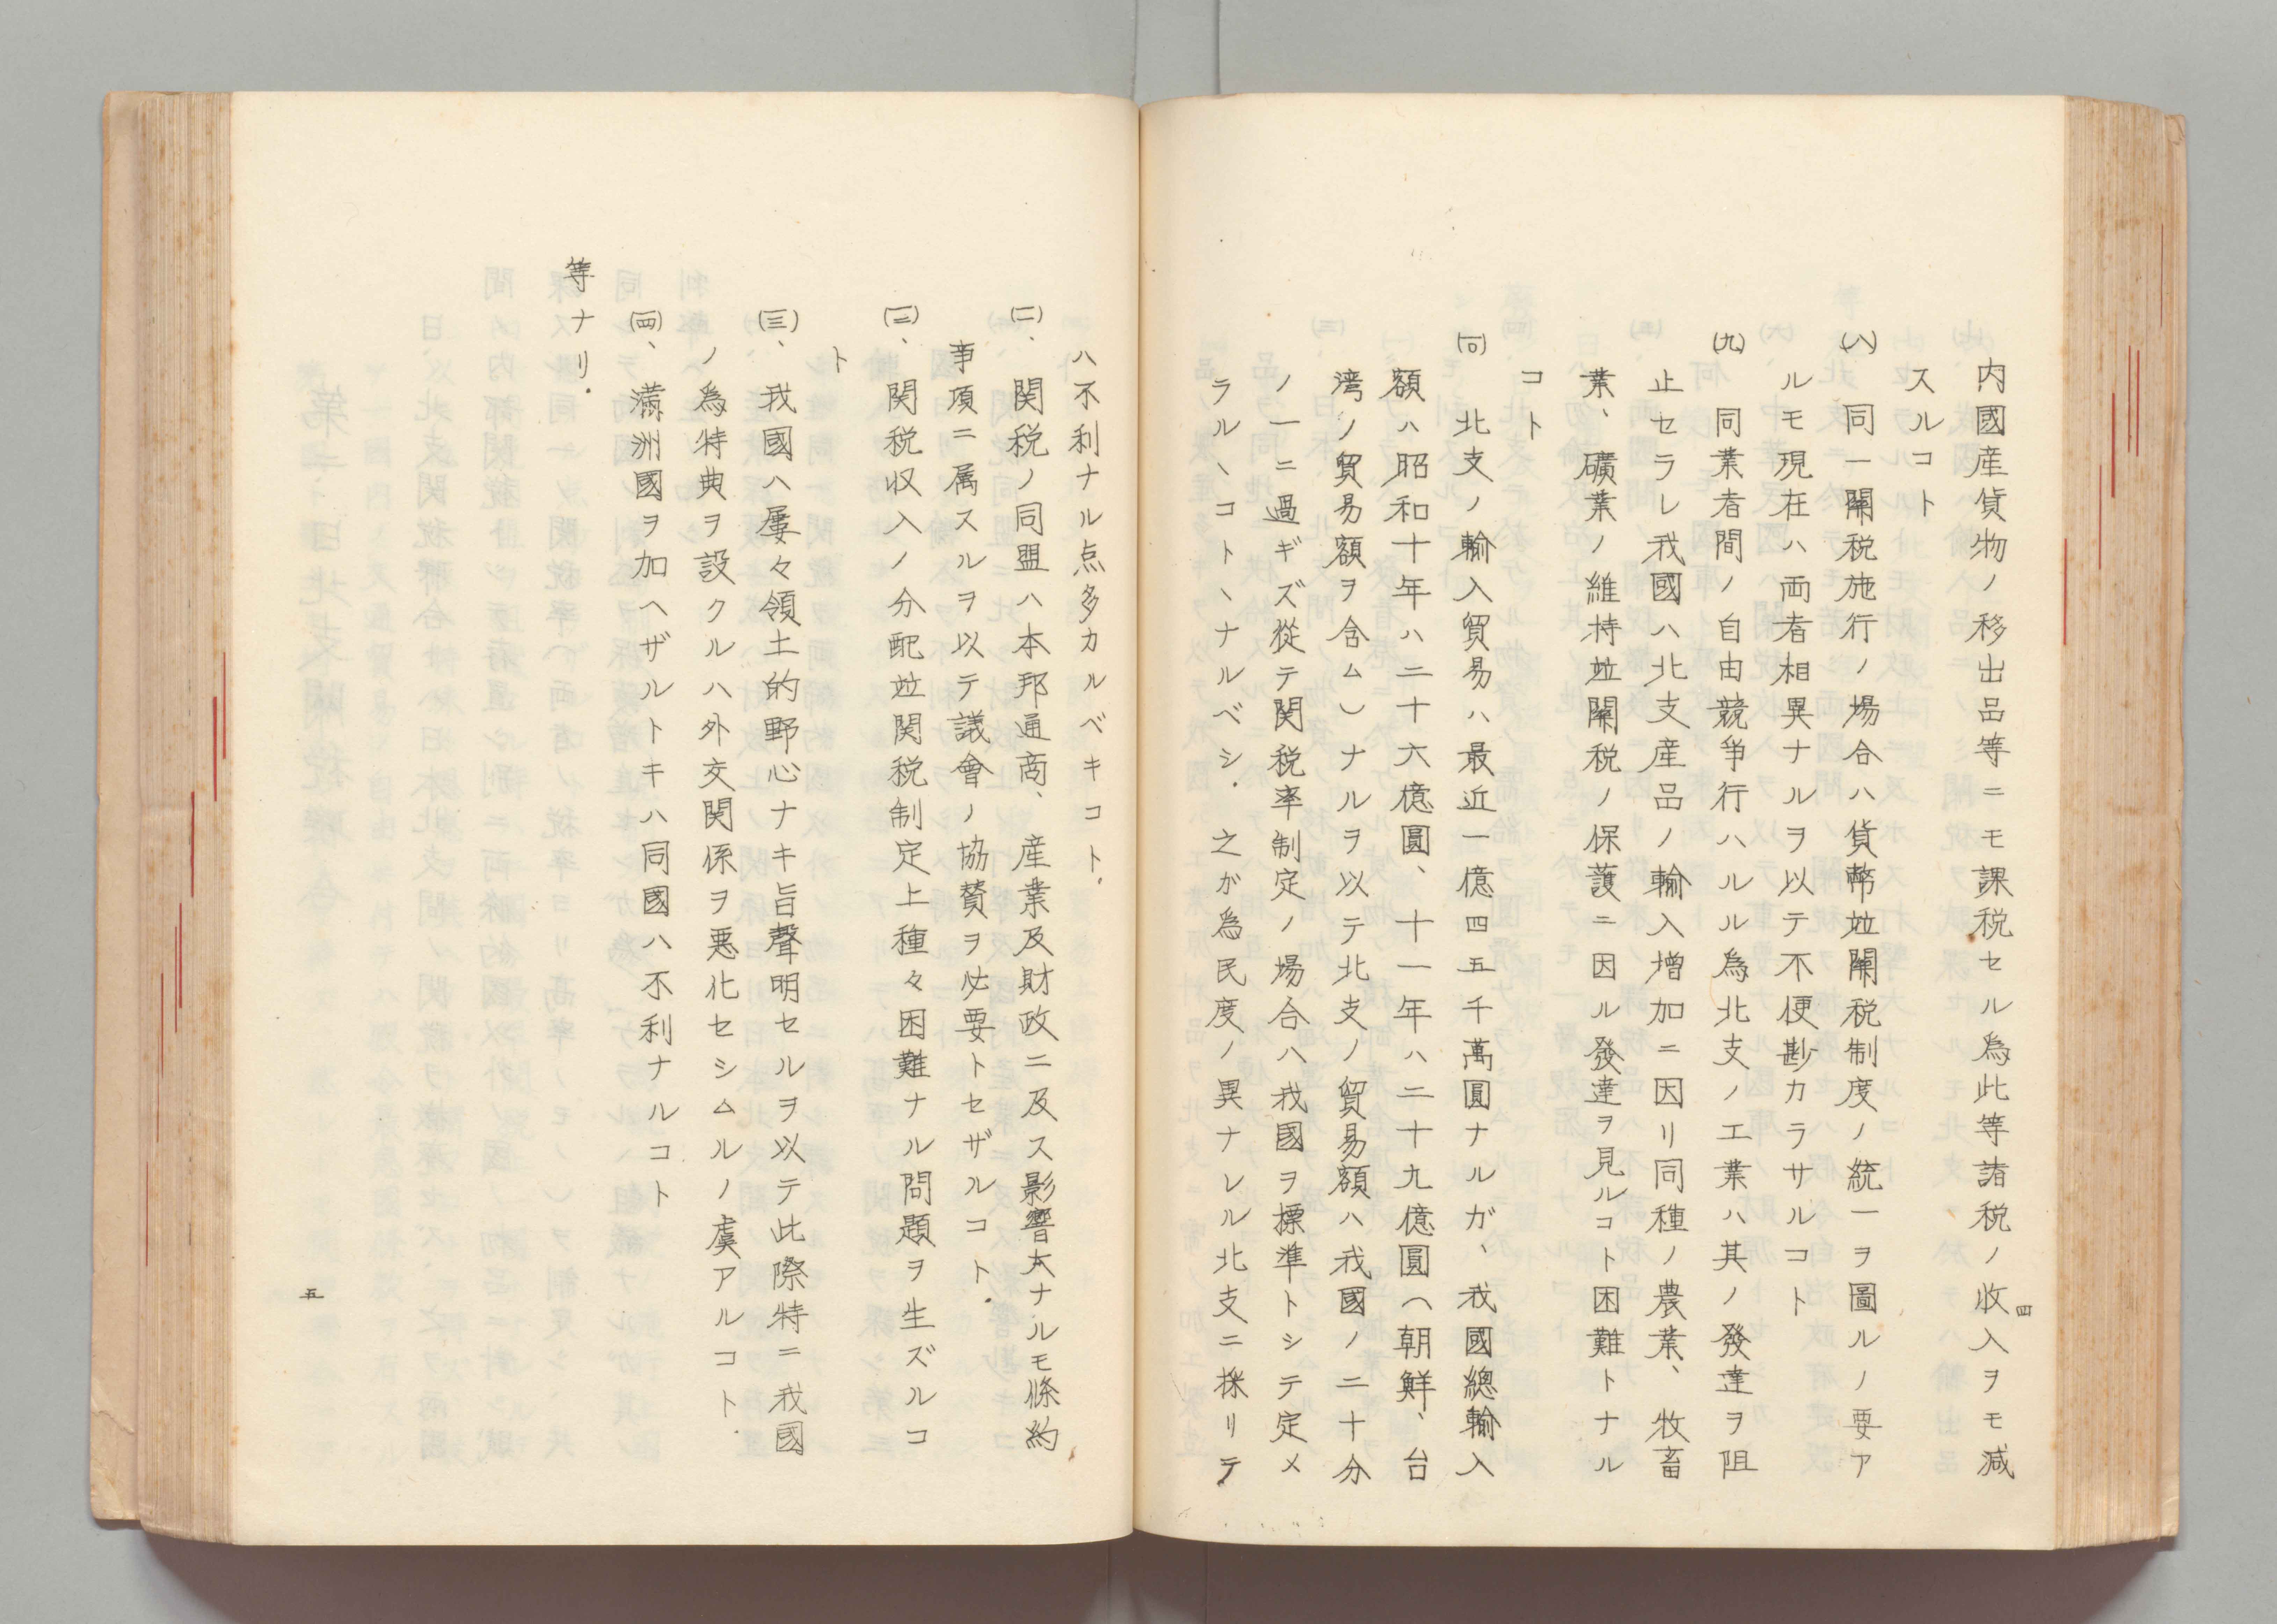 内國産貨物ノ移出品等ニモ課税セル為此等諸税ノ收入ヲモ減
スルコト
(八) 同一関税施行ノ場合ハ貨幣竝関税制度ノ統一ヲ圖ルノ要ア
ルモ現在ハ両者相異ナルヲ以テ不便尠カラサルコト
(九) 同業者間ノ自由競争行ハルル為北支ノ工業ハ其ノ發達ヲ阻
止セラレ我國ハ北支産品ノ輸入増加ニ因リ同種ノ農業、牧畜
業、礦業ノ維持竝関税ノ保護ニ因ル發達ヲ見ルコト困難トナル
コト
(十) 北支ノ輸入貿易ハ最近一億四五千萬圓ナルガ、我國總輸入
額ハ昭和十年ハ二十六億圓、十一年ハ二十九億圓(朝鮮、台
湾ノ貿易額ヲ含ム)ナルヲ以テ北支ノ貿易額ハ我國ノ二十分
ノ一ニ過ギズ從テ関税率制定ノ場合ハ我國ヲ標準トシテ定メ
ラルヽコトヽナルベシ.之が為民度ノ異ナレル北支ニ採リテ
四
ハ不利ナル点多カルベキコト.
(二)、関税ノ同盟ハ本邦通商、産業及財政ニ及ス影響大ナルモ條約
事項ニ属スルヲ以テ議會ノ協賛ヲ必要トセザルコト.
(三)、関税収入ノ分配竝関税制定上種々困難ナル問題ヲ生ズルコ
ト
(三)、我國ハ屡々領土的野心ナキ旨聲明セルヲ以テ此際特ニ我國
ノ為特典ヲ設クルハ外交関係ヲ悪化セシムルノ虞アルコト.
(四)、満洲國ヲ加ヘザルトキハ同國ハ不利ナルコト
等ナリ.
五